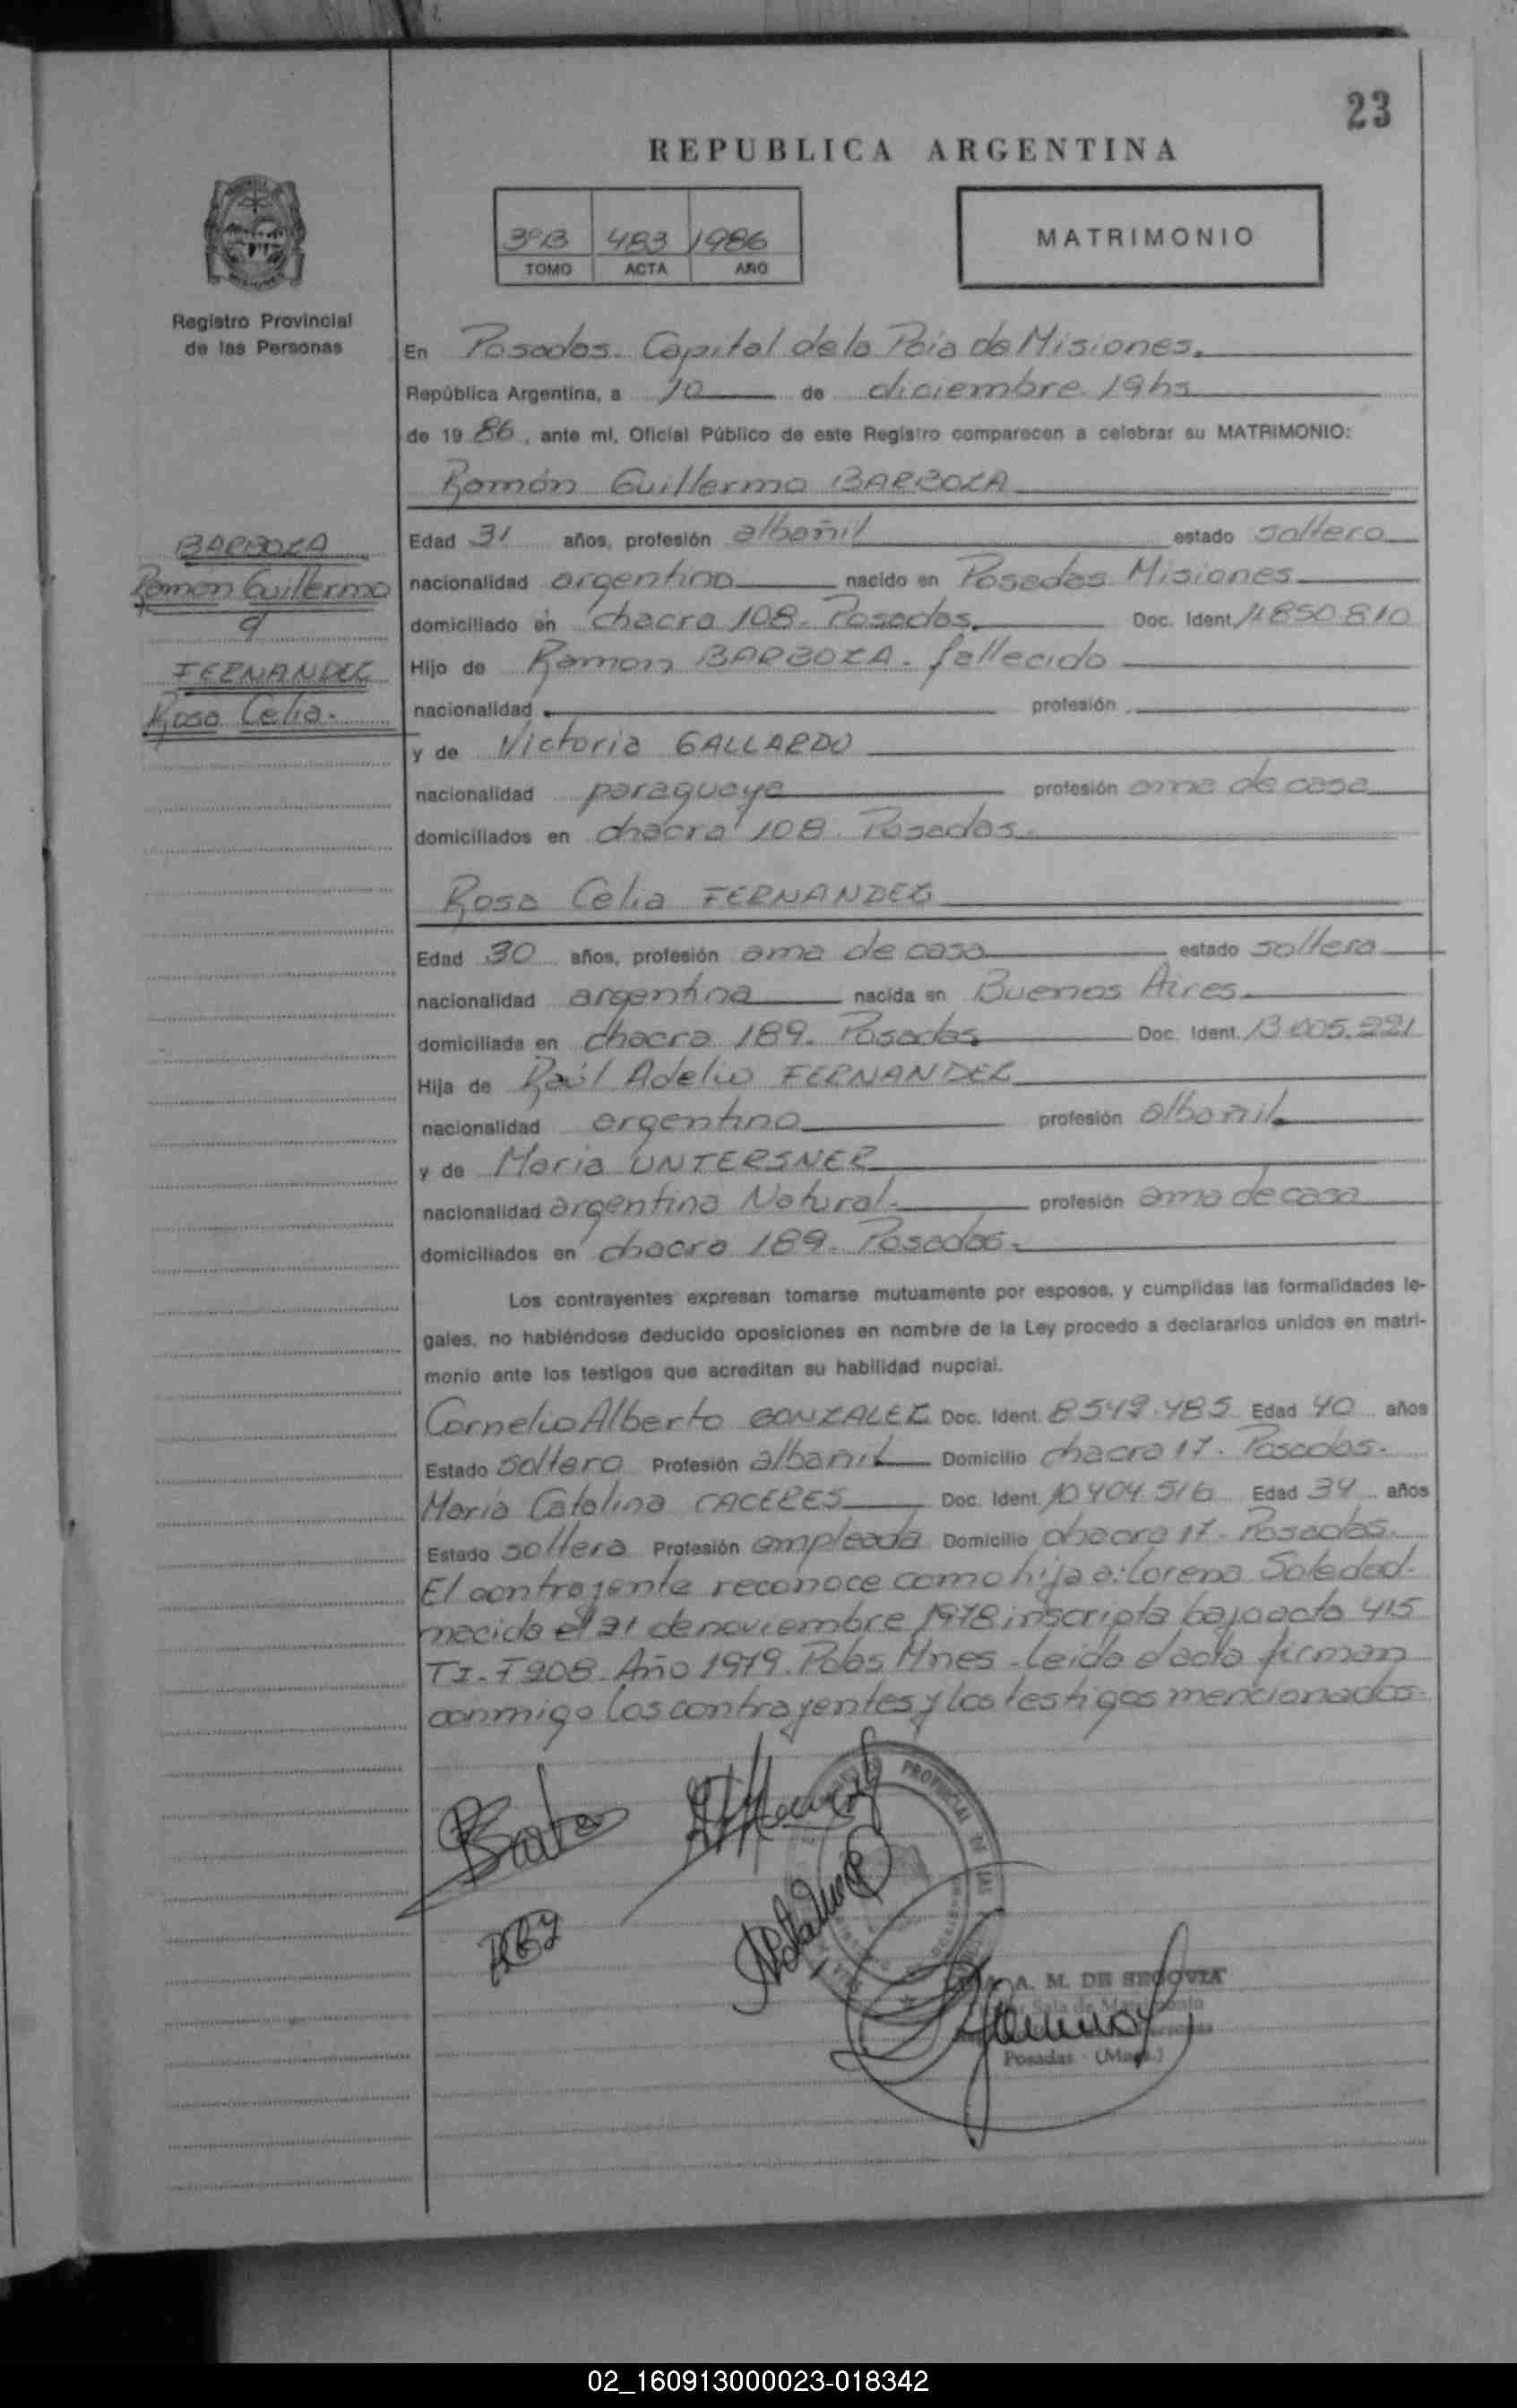 23
REPUBLICA ARGENTINA
3ºB 483 1986
TOMO ACTA AÑO
MATRIMONIO
MISIONES
Registro Provincial
de las Personas
En Posadas. Capital de la Pcia de Misiones.
República Argentina, a 10 de diciembre 19hs
de 1986, ante mí, Oficial Público de este Registro comparecen a celebrar su MATRIMONIO:
Ramón Guillermo BARBOZA
BARBOZA
Ramón Guillermo
FERNANDEZ
Rosa Celia.
Edad 31 años, profesión albañil estado soltero
nacionalidad argentino nacido en Posadas Misiones
domiciliado en chacra 108. Posadas. Doc. Ident. 11.850.810
Hijo de Ramon BARBOZA - fallecido
nacionalidad profesión
y de Victoria GALLARDO
nacionalidad paraguaya profesión ama de casa
domiciliados en chacra 108. Posadas.
Rosa Celia FERNANDEZ
Edad 30 años, profesión ama de casa estado soltera
nacionalidad argentina nacida en Buenos Aires
domiciliada en chacra 189. Posadas Doc. Ident. 13.005.221
Hija de Raúl Adelio FERNANDEZ
nacionalidad argentino profesión albañil
y de Maria UNTERSNER
nacionalidad argentina Natural. profesión ama de casa
domiciliados en chacra 189. Posadas.
Los contrayentes expresan tomarse mutuamente por esposos, y cumplidas las formalidades le-
gales, no habiéndose deducido oposiciones en nombre de la Ley procedo a declararlos unidos en matri-
monio ante los testigos que acreditan su habilidad nupcial.
Cornelio Alberto GONZALEZ Doc. Ident. 8549.485 Edad 40 años
Estado soltero Profesión albañil Domicilio chacra 17. Posadas.
María Catalina CACERES Doc. Ident. 10404.516 Edad 34 años
Estado soltera Profesión empleada Domicilio chacra 17. Posadas.
El contrayente reconoce como hija a: Lorena Soledad.
nacida el 21 de noviembre 1978 inscripta bajo acta 415
TI-F208. Año 1979. Pdas Mnes. Leida el acta firman
conmigo los contrayentes y los testigos mencionados.
PROVINCIAL DE LAS
A. M. DE SEGOVIA
Sala de Matrimonio
Posadas - (Mnes.)
02_160913000023-018342